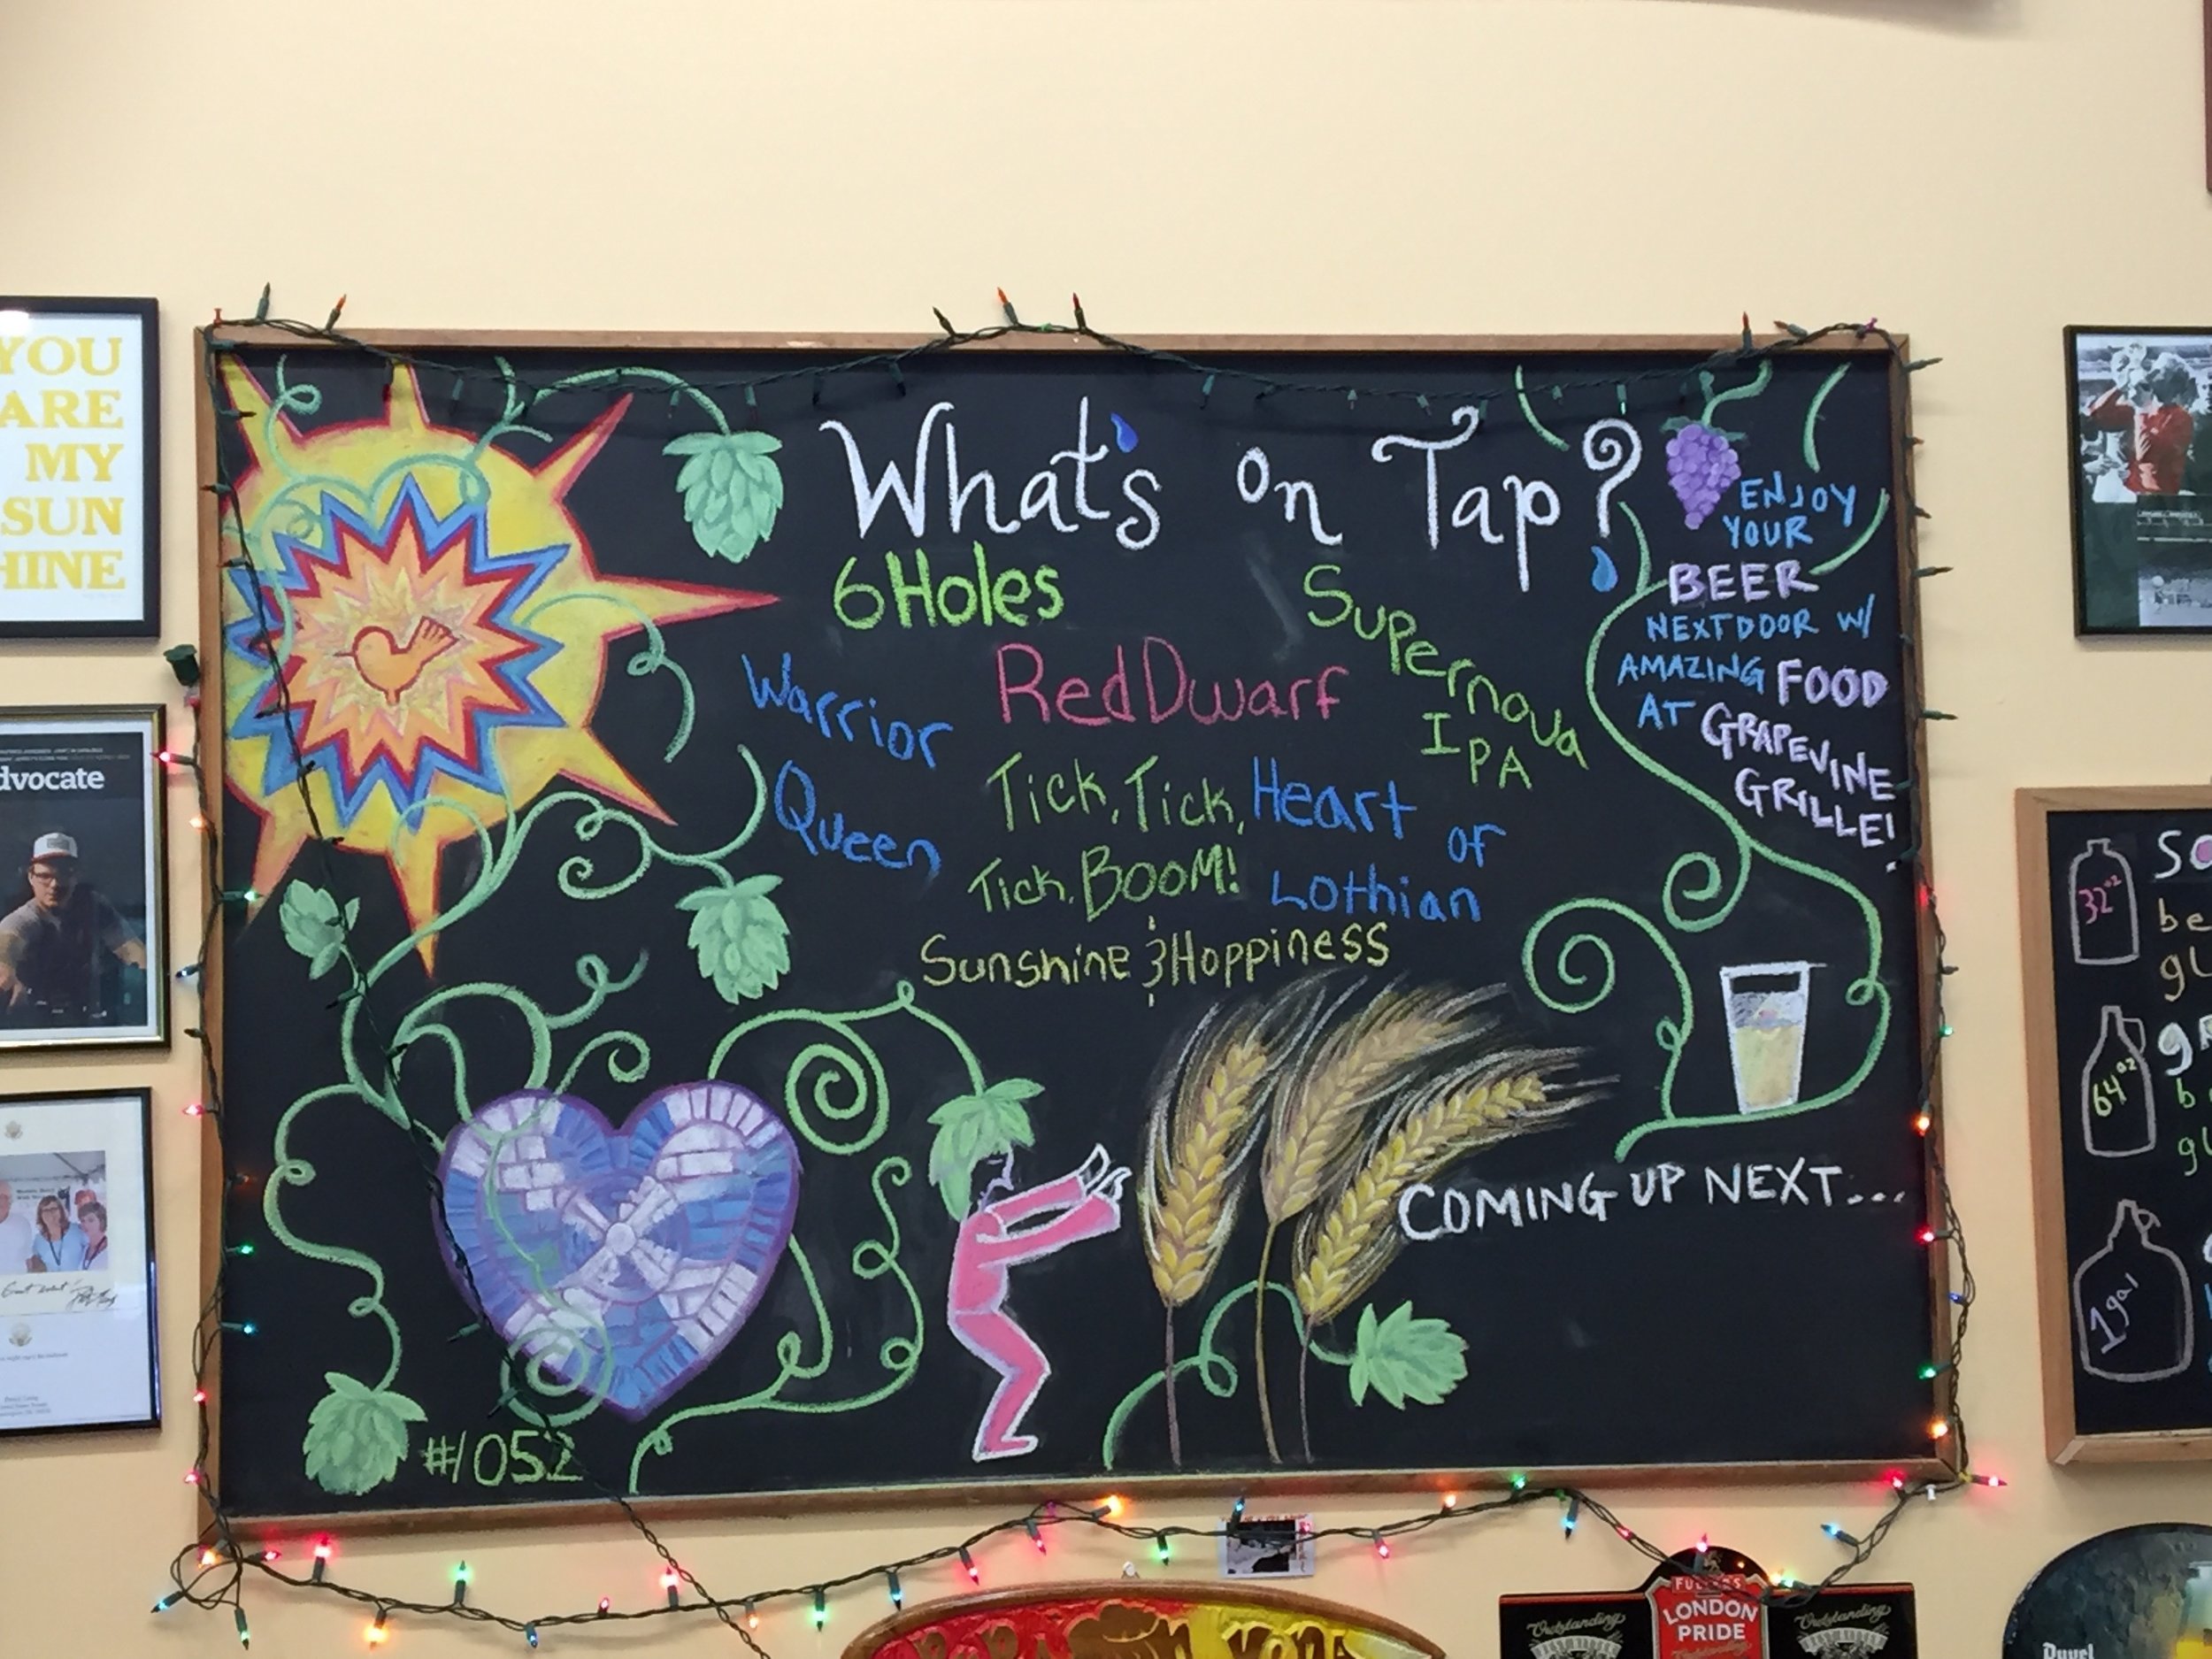 What's on Tap?
6 Holes
Warrior
Queen
Red Dwarf
Supernova
IPA
Tick, Tick,
Tick, BOOM!
Heart of
Lothian
Sunshine & Hoppiness
ENJOY
YOUR
BEER
NEXTDOOR W/
AMAZING FOOD
AT GRAPEVINE
GRILLE!
COMING UP NEXT...
#1052
YOU
ARE
MY
SUN
HINE
dvocate
32oz
be
gL
64oz
b
gL
1gal
FULLER'S
LONDON
PRIDE
Outstanding
Outstanding
Outstanding
Duvel